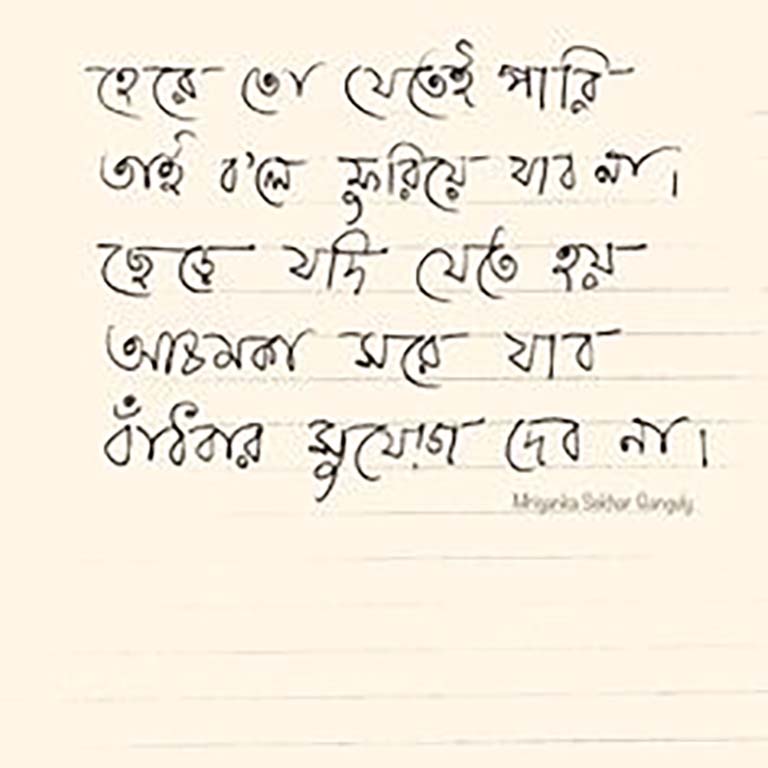 হেরে তো যেতেই পারি
তাই ব'লে ফুরিয়ে যাব না।
ছেড়ে যদি যেতে হয়
আচমকা সরে যাব
বাঁচবার সুযোগ দেব না।
Mriganka Sekhar Ganguly